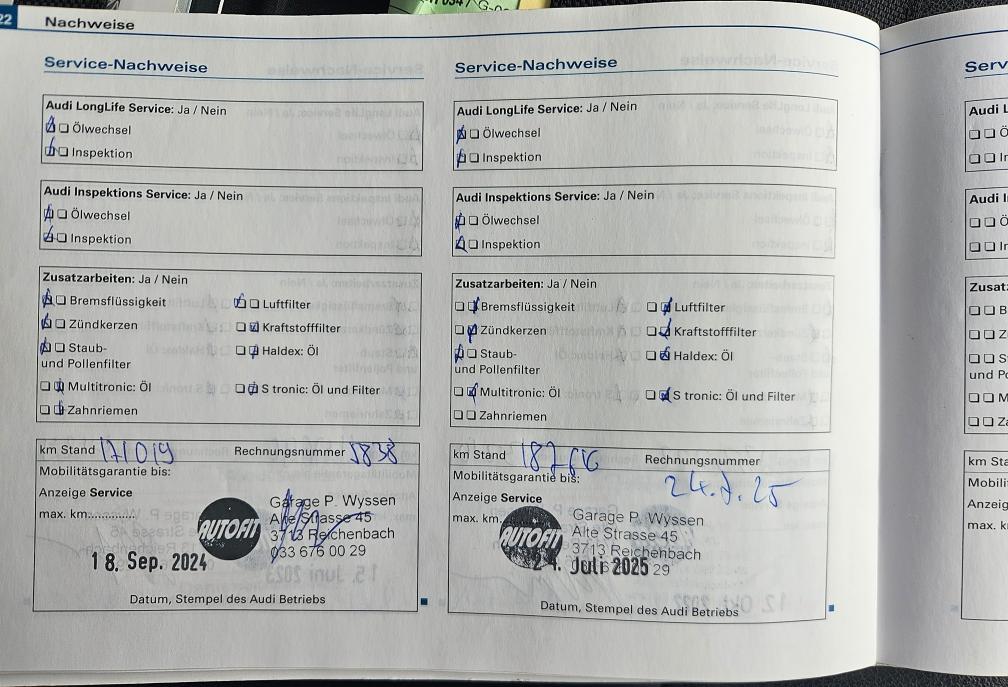 22 Nachweise
Service-Nachweise
Audi LongLife Service: Ja / Nein
Ölwechsel
Inspektion
Audi Inspektions Service: Ja / Nein
Ölwechsel
Inspektion
Zusatzarbeiten: Ja / Nein
Bremsflüssigkeit Luftfilter
Zündkerzen Kraftstofffilter
Staub- Haldex: Öl
und Pollenfilter
Multitronic: Öl S tronic: Öl und Filter
Zahnriemen
km Stand 171019 Rechnungsnummer 5838
Mobilitätsgarantie bis:
Anzeige Service
max. km:
AUTOFIT
Garage P. Wyssen
Alte Strasse 45
3713 Reichenbach
033 676 00 29
18. Sep. 2024
Datum, Stempel des Audi Betriebs
Service-Nachweise
Audi LongLife Service: Ja / Nein
Ölwechsel
Inspektion
Audi Inspektions Service: Ja / Nein
Ölwechsel
Inspektion
Zusatzarbeiten: Ja / Nein
Bremsflüssigkeit Luftfilter
Zündkerzen Kraftstofffilter
Staub- Haldex: Öl
und Pollenfilter
Multitronic: Öl S tronic: Öl und Filter
Zahnriemen
km Stand Rechnungsnummer
Mobilitätsgarantie bis: 24.7.25
Anzeige Service
max. km:
AUTOFIT
Garage P. Wyssen
Alte Strasse 45
3713 Reichenbach
24. Juli 2025 29
Datum, Stempel des Audi Betriebs